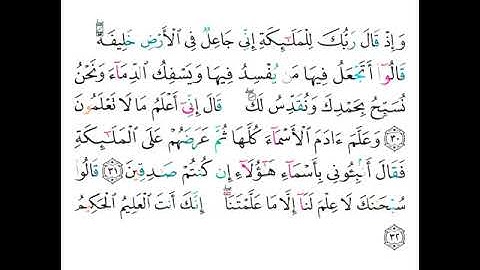 وَإِذْ قَالَ رَبُّكَ لِلْمَلَـٰٓئِكَةِ إِنِّى جَاعِلٌ فِى ٱلْأَرْضِ خَلِيفَةًۖ
قَالُوٓا۟ أَتَجْعَلُ فِيهَا مَن يُفْسِدُ فِيهَا وَيَسْفِكُ ٱلدِّمَآءَ وَنَحْنُ
نُسَبِّحُ بِحَمْدِكَ وَنُقَدِّسُ لَكَۖ قَالَ إِنِّىٓ أَعْلَمُ مَا لَا تَعْلَمُونَ
٣٠ وَعَلَّمَ ءَادَمَ ٱلْأَسْمَآءَ كُلَّهَا ثُمَّ عَرَضَهُمْ عَلَى ٱلْمَلَـٰٓئِكَةِ
فَقَالَ أَنۢبِـُٔونِى بِأَسْمَآءِ هَـٰٓؤُلَآءِ إِن كُنتُمْ صَـٰدِقِينَ ٣١ قَالُوا۟
سُبْحَـٰنَكَ لَا عِلْمَ لَنَآ إِلَّا مَا عَلَّمْتَنَآۖ إِنَّكَ أَنتَ ٱلْعَلِيمُ ٱلْحَكِيمُ
٣٢